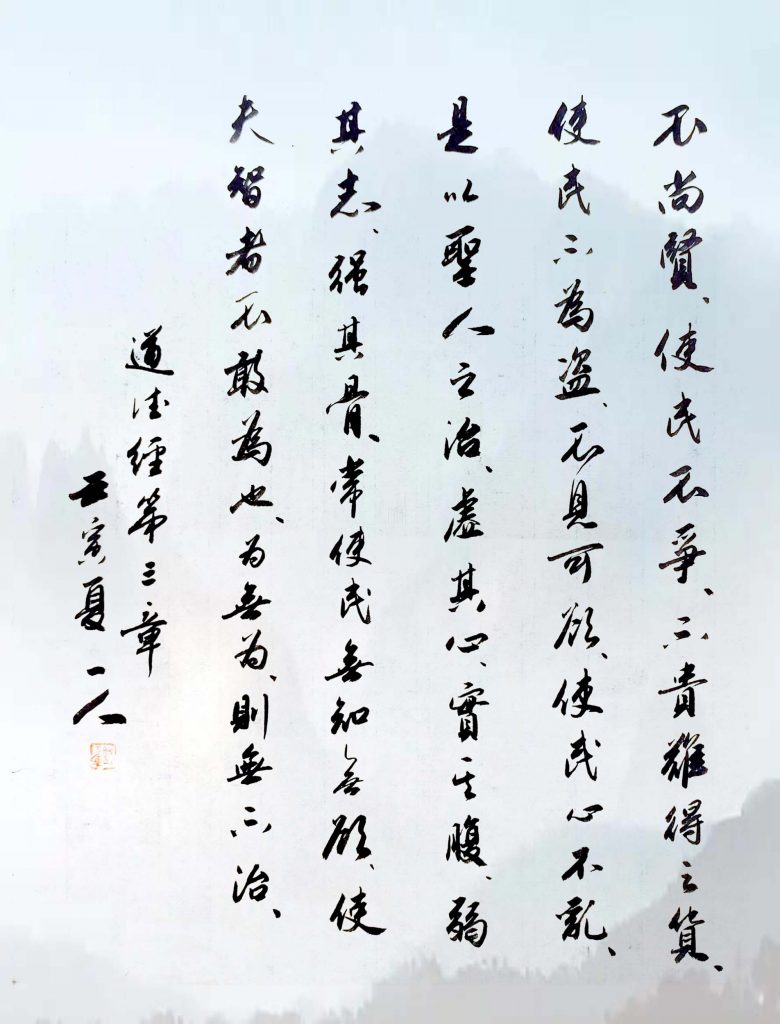 不尚賢、使民不爭、不貴難得之貨、
使民不為盜、不見可欲、使民心不亂、
是以聖人之治、虛其心、實其腹、弱
其志、强其骨、常使民無知無欲、使
夫智者不敢為也、为無为、則無不治、
道德經第三章
壬寅夏一人